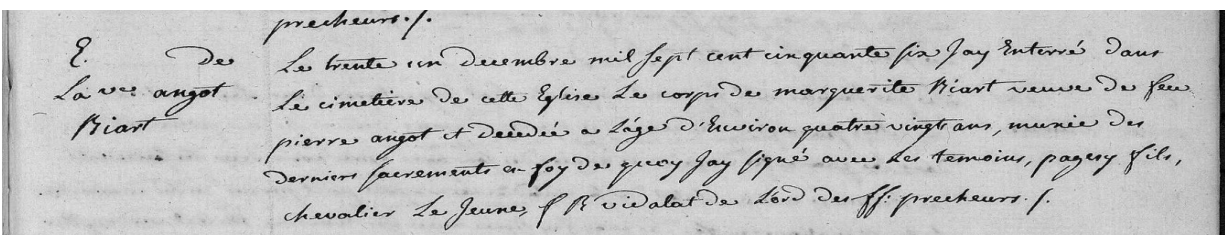 precheurs ./.
E. de
La vve angot
Riart
Le trente un decembre mil sept cent cinquante six Jay Enterré dans
Le cimetiere de cette Eglise Le corps de marguerite Riart veuve de feu
pierre angot et decedée a Lâge d'Environ quatre vingt ans, munie des
derniers sacrements en foy de quoy Jay signé avec Les temoins, pagesy fils,
chevalier Le Jeune, f R vidalat de L'ord des ff. precheurs ./.